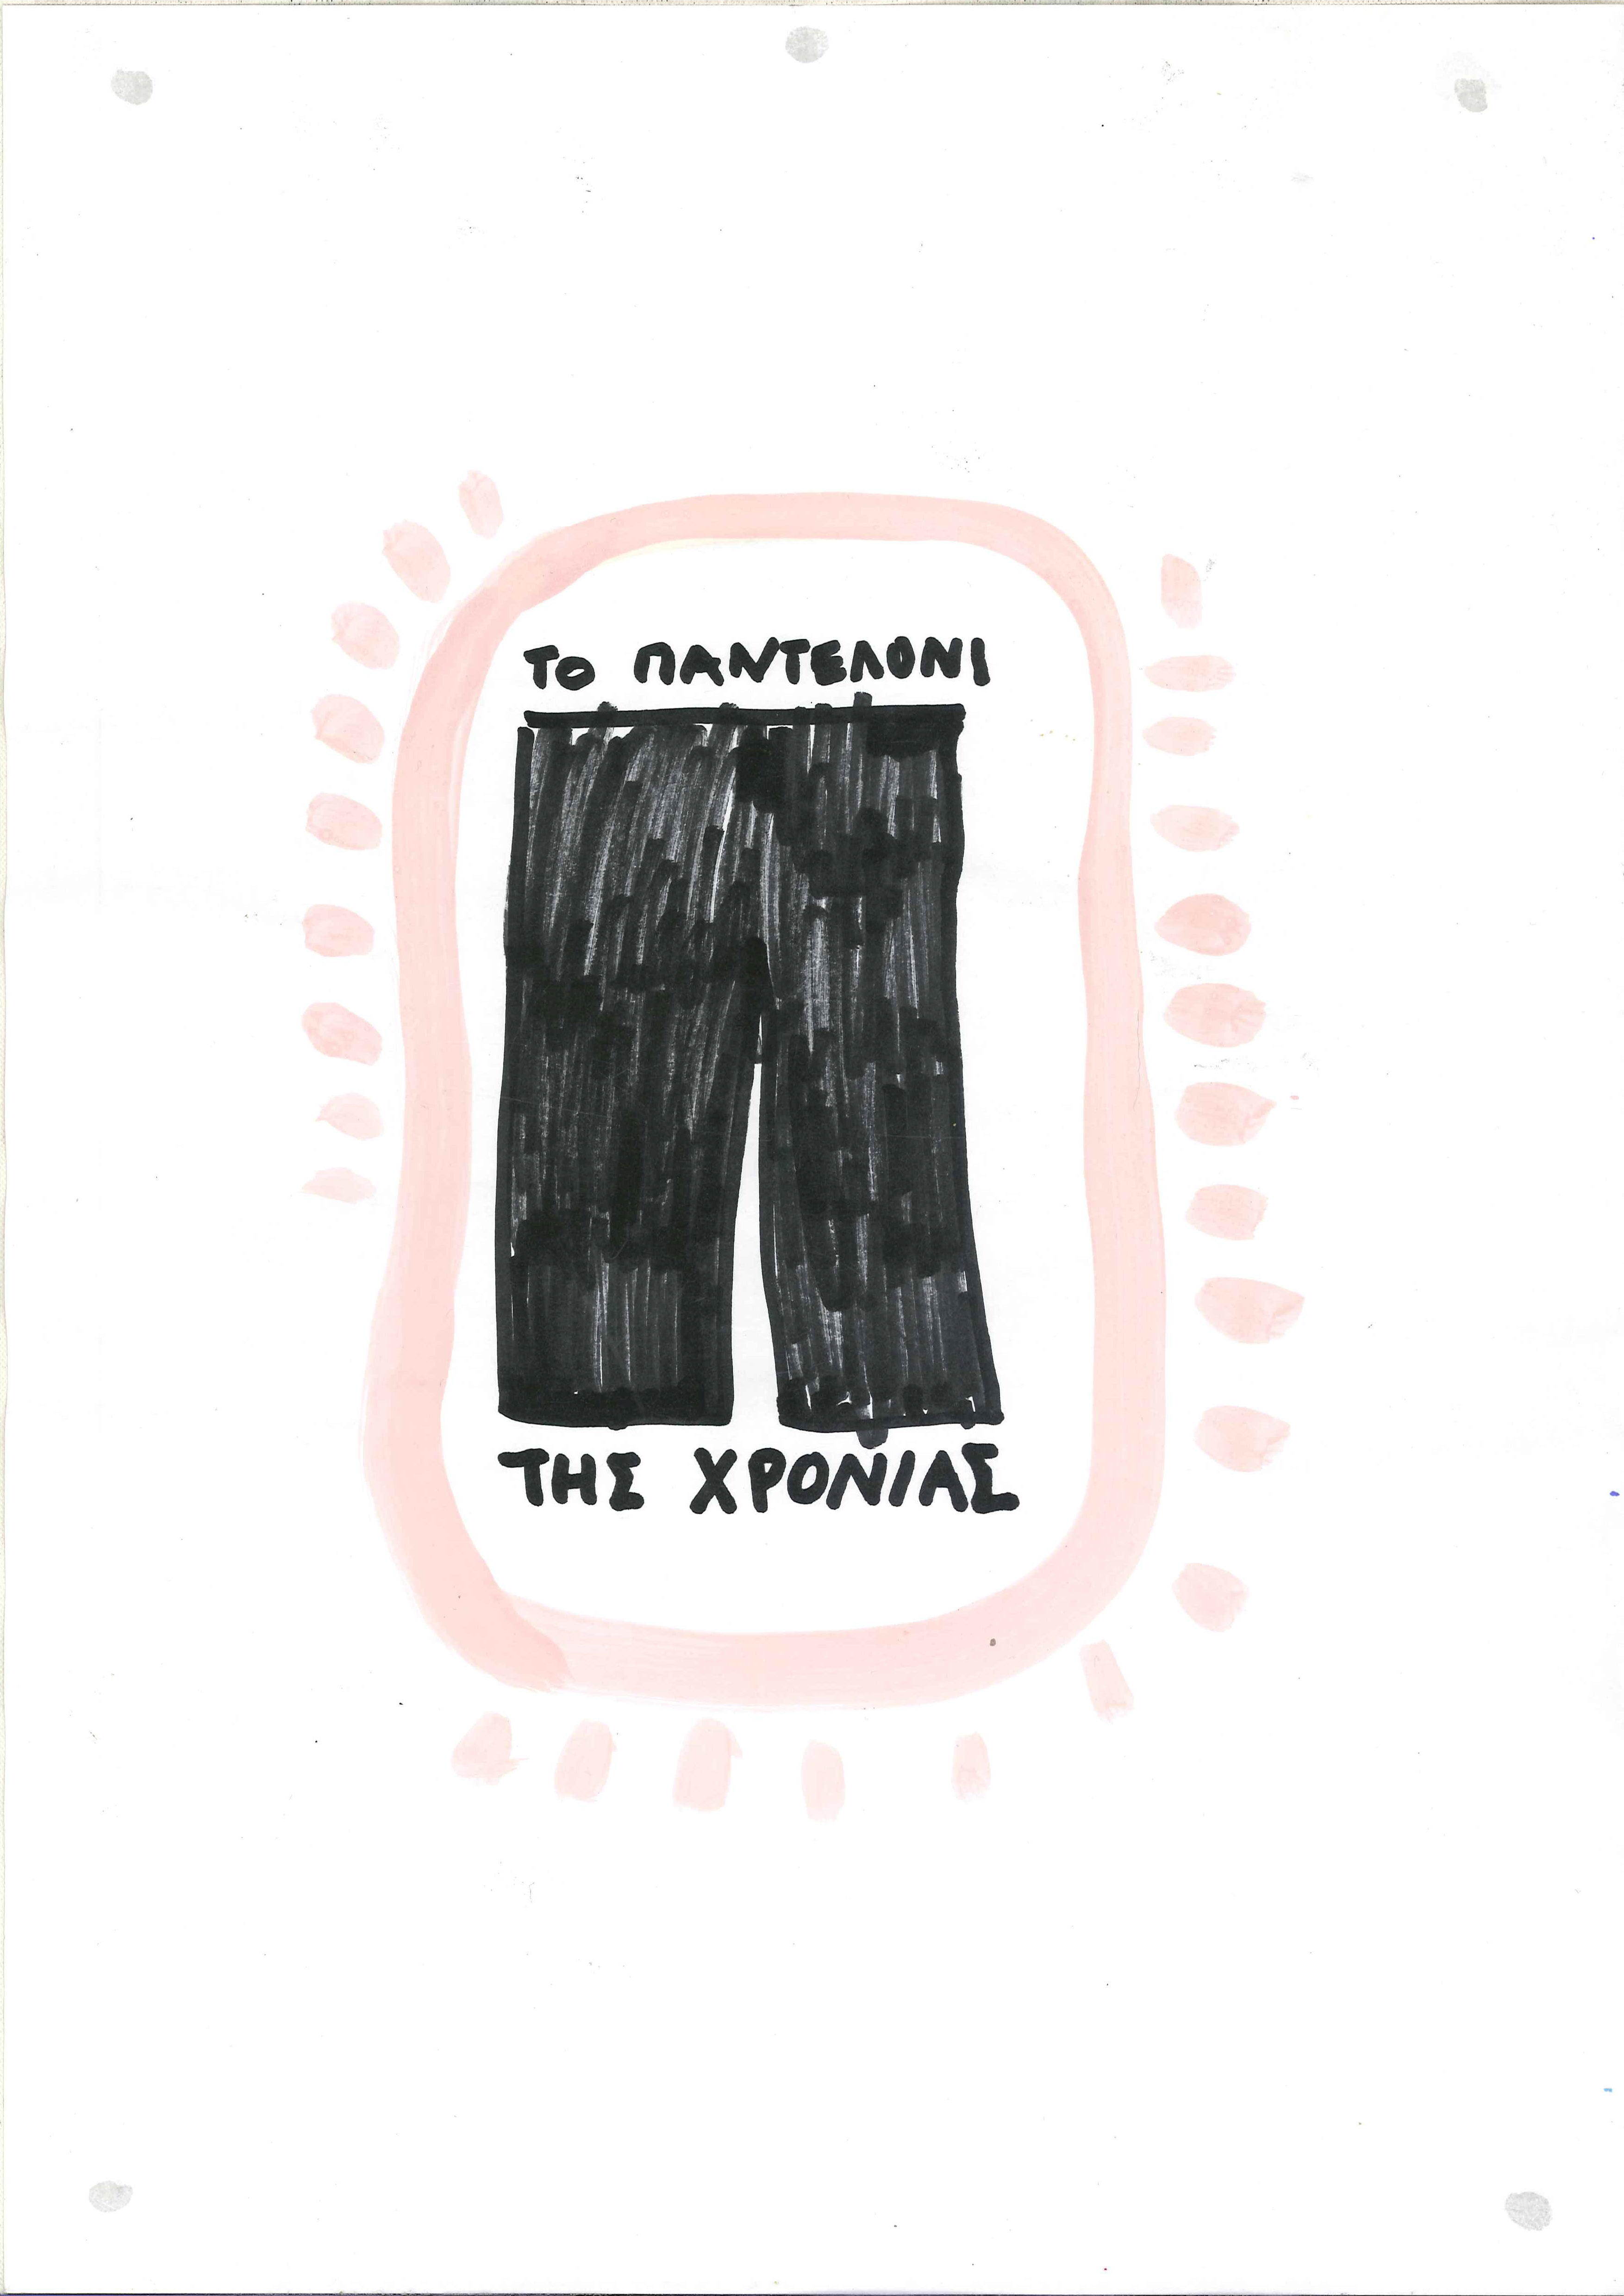 ΤΟ ΠΑΝΤΕΛΟΝΙ
ΤΗΣ ΧΡΟΝΙΑΣ